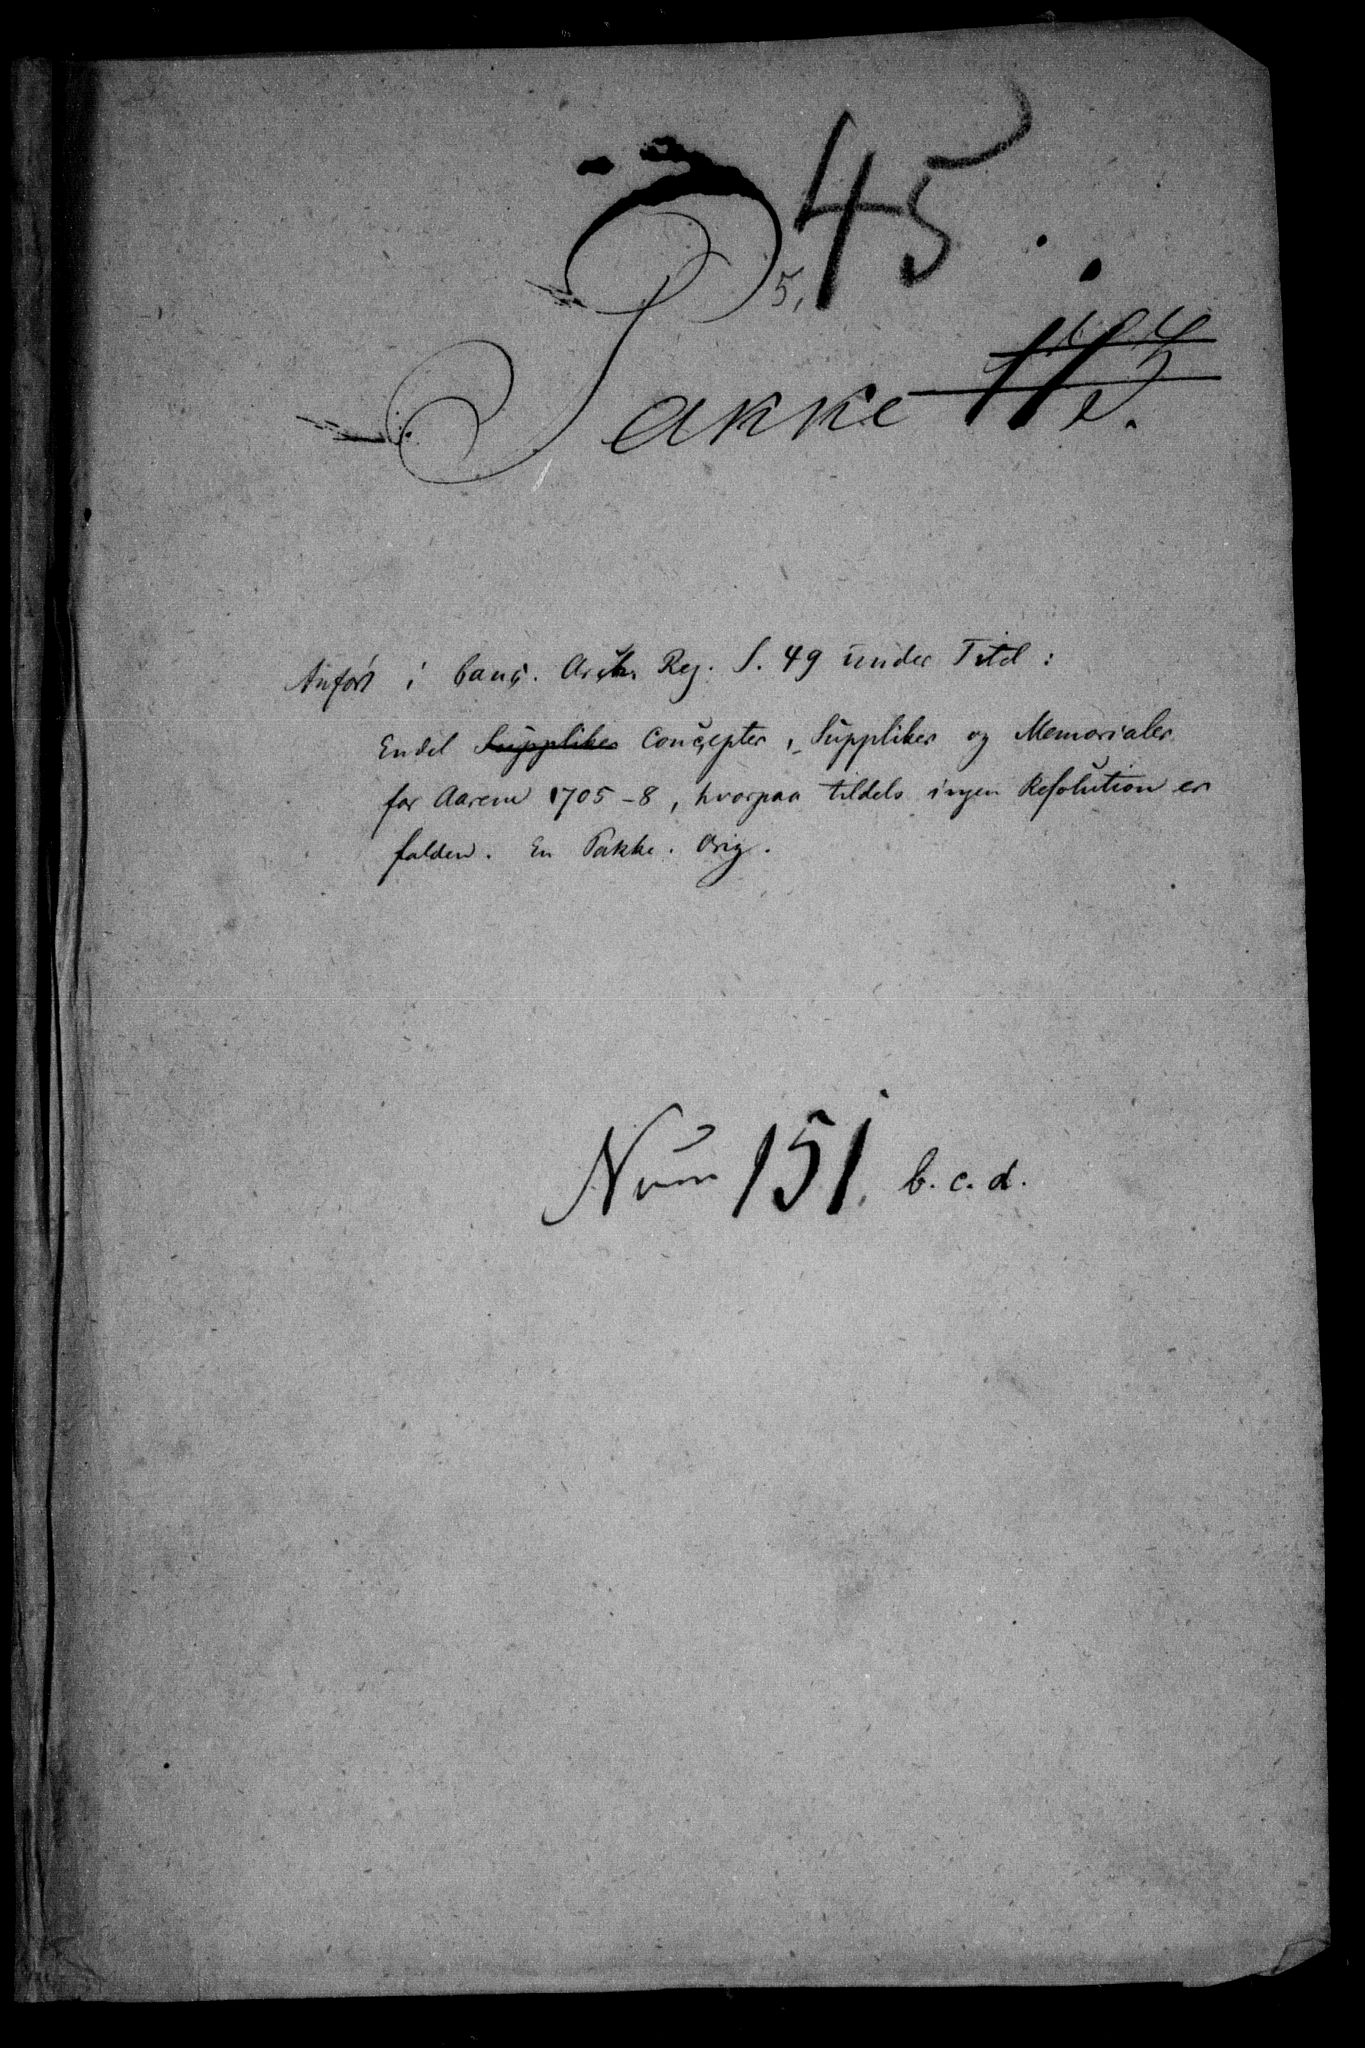 45
5,
Pakke
Anført i Canc. Arch. Reg. S. 49 under Titel:
Endel Suppliker Concepter, Suppliker og Memorialer
for Aarene 1705-8, hvorpaa tildels ingen Resolution er
falden. En Pakke. Orig.
Num 151. b. c. d.